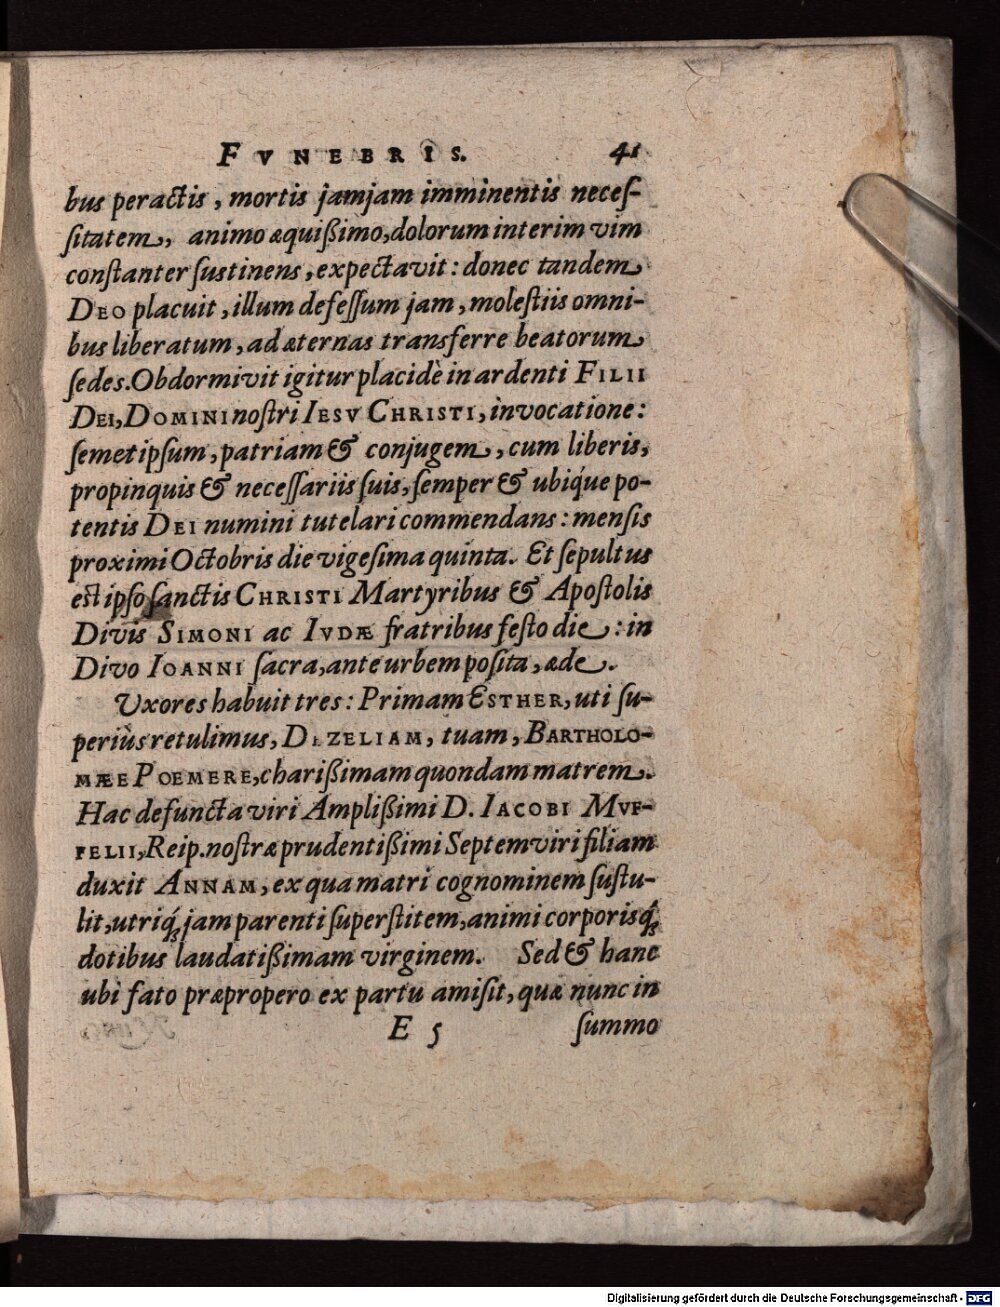 FVNEBRIS. 41
bus peractis, mortis jamjam imminentis neceſ-
ſitatem, animo æquißimo, dolorum interim vim
conſtanter ſustinens, expectavit: donec tandem
DEO placuit, illum defeſſum jam, moleſtiis omni-
bus liberatum, ad æternas transferre beatorum
ſedes. Obdormivit igitur placidè in ardenti FILII
DEI, DOMINI noſtri IESV CHRISTI, invocatione:
ſemetipſum, patriam & conjugem, cum liberis,
propinquis & neceſſariis ſuis, ſemper & ubiq́ue po-
tentis DEI numini tutelari commendans: menſis
proximi Octobris die vigeſima quinta. Et ſepultus
est ipſo ſanctis CHRISTI Martyribus & Apoſtolis
Divis SIMONI ac IVDÆ fratribus feſto die: in
Divo IOANNI ſacra, ante urbem poſita, æde.
Vxores habuit tres: Primam ESTHER, uti ſu-
periùs retulimus, DEZELIAM, tuam, BARTHOLO-
MÆE POEMERE, charißimam quondam matrem.
Hac defuncta viri Amplißimi D. IACOBI MVF-
FELII, Reip. noſtræ prudentißimi Septemviri filiam
duxit ANNAM, ex qua matri cognominem ſuſtu-
lit, utriq́; jam parenti ſuperſtitem, animi corporisq́;
dotibus laudatißimam virginem. Sed & hanc
ubi fato præpropero ex partu amiſit, quæ nunc in
E 5 ſummo
Digitalisierung gefördert durch die Deutsche Forschungsgemeinschaft - DFG